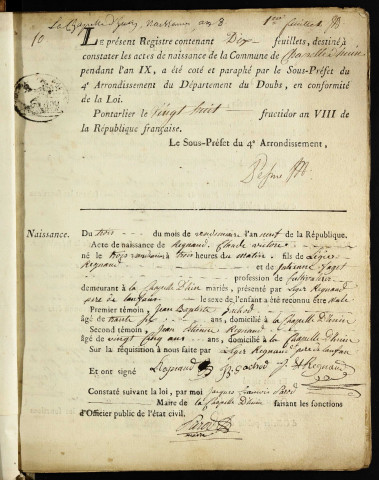 La Chapelle d'huin, Naissance an 9
1er feuillet
10
LE présent Registre contenant Dix feuillets, destiné à
constater les actes de naissance de la Commune de Chapelle d'huin
pendant l'an IX, a été coté et paraphé par le Sous-Préfet du
4e Arrondissement du Département du Doubs, en conformité
de la Loi.
Pontarlier le vingt huit fructidor an VIII de
la République française.
Le Sous-Préfet du 4e Arrondissement,
Naissance.
Du trois du mois de vendemiaire l'an neuf de la République.
Acte de naissance de Regnaud Claude
né le trois vendemiaire trois heures du matin fils de Léger
Regnaud et de Julienne
profession de cultivateur
demeurant à la Chapelle d'huin mariés, présenté par Léger Regnaud
père de l'enfant le sexe de l'enfant a été reconnu être male
Premier témoin, Jean Baptiste
âgé de trente ans, domicilié à la Chapelle d'huin
Second témoin, Jean Etienne Regnaud
âgé de vingt cinq ans, domicilié à la Chapelle d'huin
Sur la réquisition à nous faite par Léger Regnaud père de l'enfant
Et ont signé L Regnaud J. E Regnaud
Constaté suivant la loi, par moi Jacques François
Maire de la Chapelle d'huin faisant les fonctions
d'Officier public de l'état civil,
maire